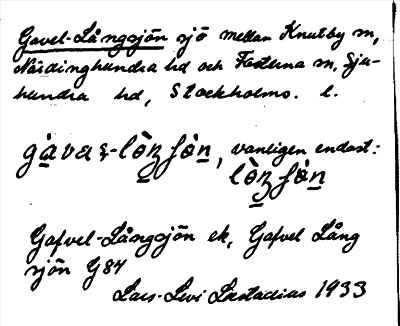 Gavel-Långsjön sjö mellan Knutby sn,
Närdinghundra hd och Fasterna sn, Sju-
hundra hd, Stockholms. l.
vanligen endast:
Gafvel-Långsjön ek, Gafvel Lång
sjön G84
Lars-Levi Læstadius 1933